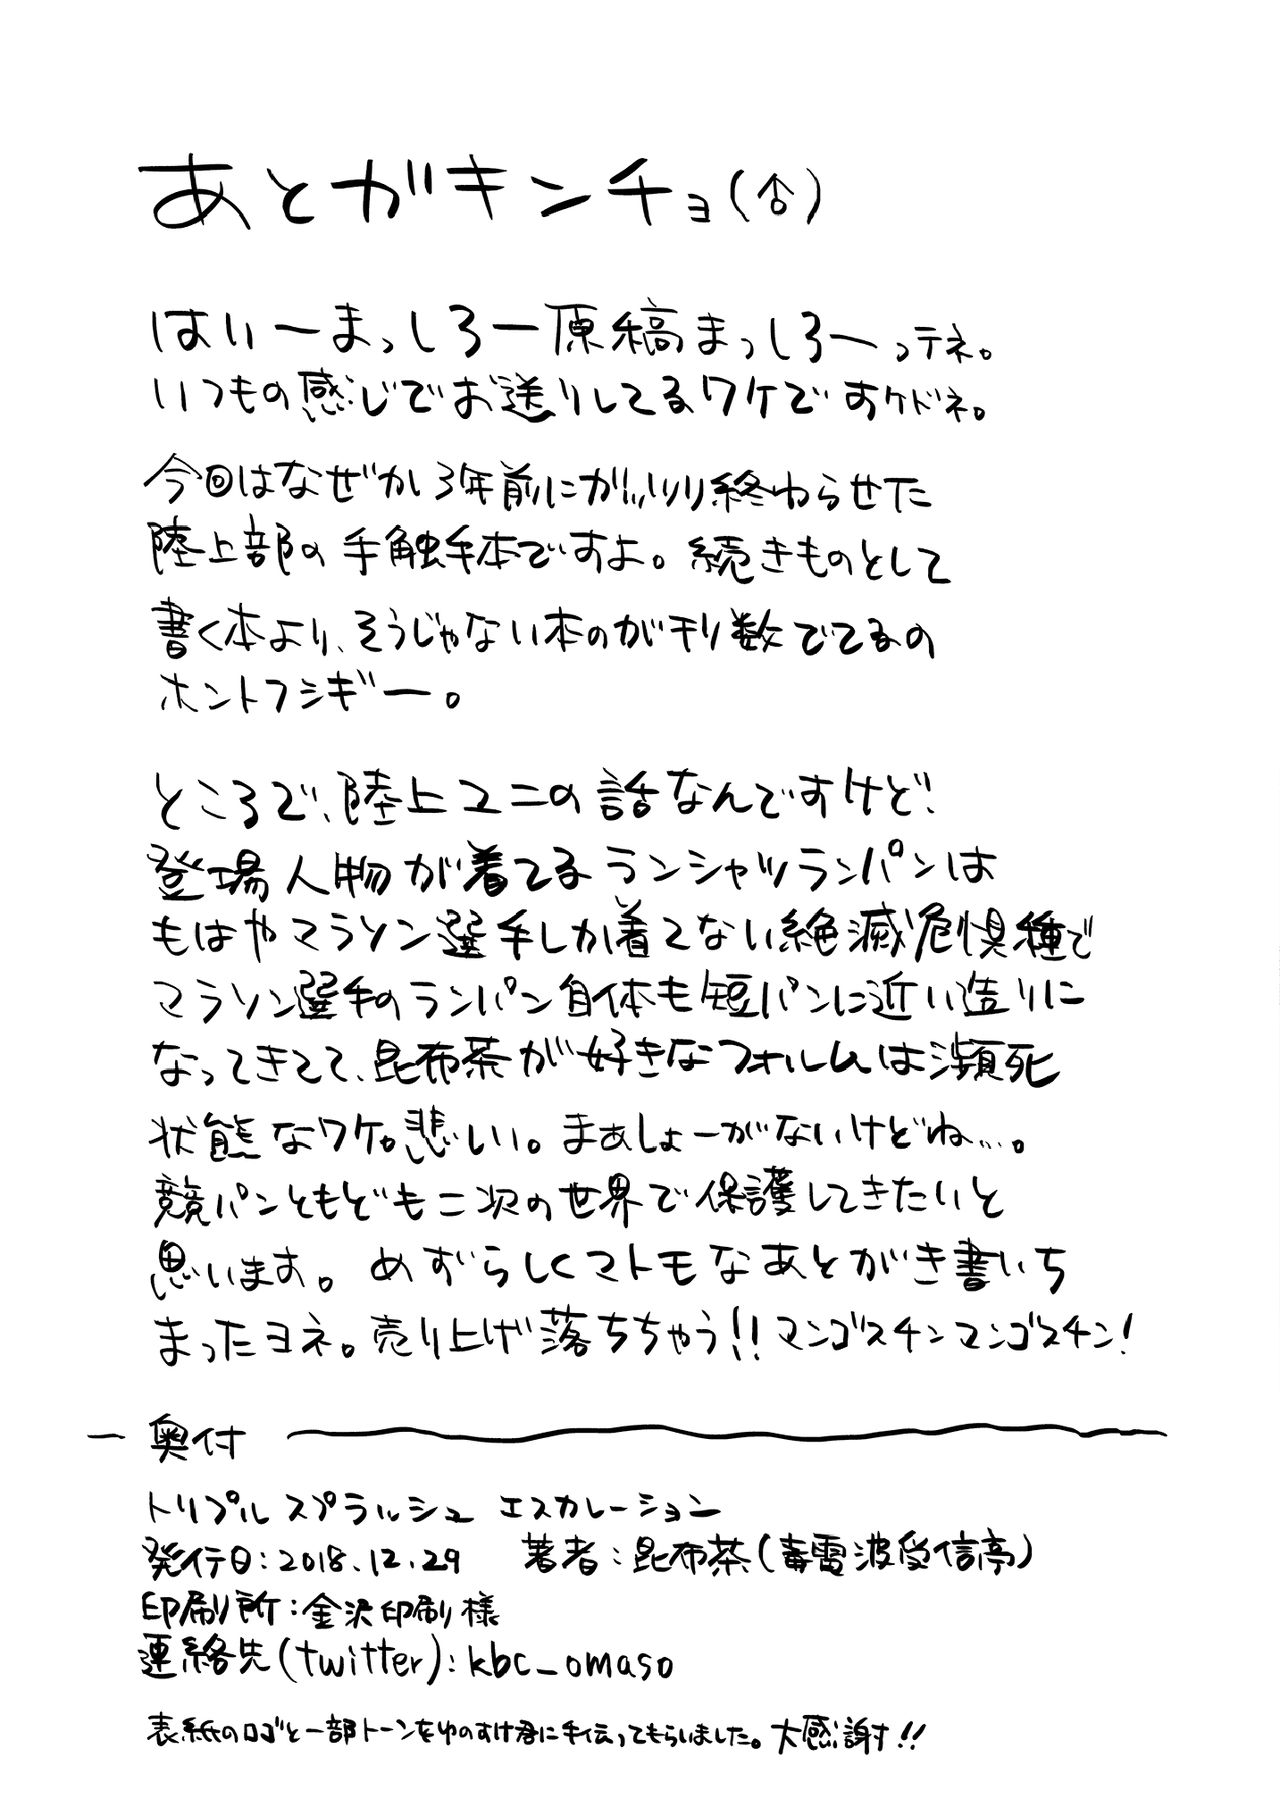 あとガキンチョ(♂)
はいーまっしろー原稿まっしろーってネ。
いつもの感じでお送りしてるワケですケドネ。
今回はなぜか3年前にガッツリ終わらせた
陸上部の触手本ですよ。続きものとして
書く本より、そうじゃない本のが刊数でてるの
ホントフシギー。
ところで、陸上ユニの話なんですけど!
登場人物が着てるランシャツランパンは
もはやマラソン選手しか着てない絶滅危惧種で
マラソン選手のランパン自体も短パンに近い造りに
なってきてて、昆布茶が好きなフォルムは瀕死
状態なワケ。悲しい。まぁしょーがないけどね…。
競パンともども二次の世界で保護してきたいと
思います。めずらしくマトモなあとがき書いち
まったヨネ。売り上げ落ちちゃう!!マンゴスチンマンゴスチン!
ー 奥付
トリプルスプラッシュ エスカレーション
発行日:2018.12.29 著者:昆布茶(毒電波受信亭)
印刷所:金沢印刷様
連絡先(twitter):kbc_omaso
表紙のロゴと一部トーンをゆのすけ君に手伝ってもらいました。大感謝!!